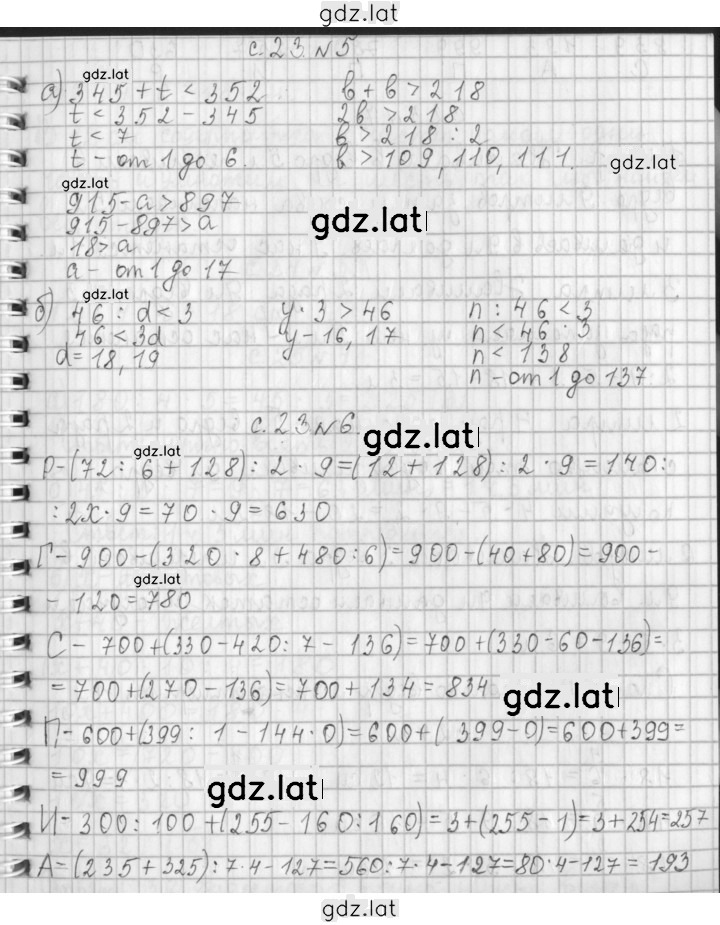 gdz.lat
с. 23. №5.
gdz.lat
а) 345 + t < 352 в + в > 218
t < 352 - 345 2в > 218
t < 7 в > 218 : 2
t - от 1 до 6. в > 109, 110, 111.
gdz.lat
gdz.lat
915 - а > 897
915 - 897 > а
gdz.lat
18 > а
а - от 1 до 17
gdz.lat
б) 46 : d < 3 у · 3 > 46 n : 46 < 3
46 < 3d у - 16, 17 n < 46 · 3
d = 18, 19 n < 138
n - от 1 до 137
с. 23 №6.
gdz.lat
gdz.lat
Р - (72 : 6 + 128) : 2 · 9 = (12 + 128) : 2 · 9 = 140 :
: 2х · 9 = 70 · 9 = 630
Г - 900 - (320 · 8 + 480 : 6) = 900 - (40 + 80) = 900 -
gdz.lat
- 120 = 780
С - 700 + (330 - 420 : 7 - 136) = 700 + (330 - 60 - 136) =
= 700 + (270 - 136) = 700 + 134 = 834
gdz.lat
П - 600 + (399 : 1 - 144 · 0) = 600 + (399 - 0) = 600 + 399 =
= 999
gdz.lat
И - 300 : 100 + (255 - 160 : 160) = 3 + (255 - 1) = 3 + 254 = 257
А = (235 + 325) : 7 · 4 - 127 = 560 : 7 · 4 - 127 = 80 · 4 - 127 = 193
gdz.lat